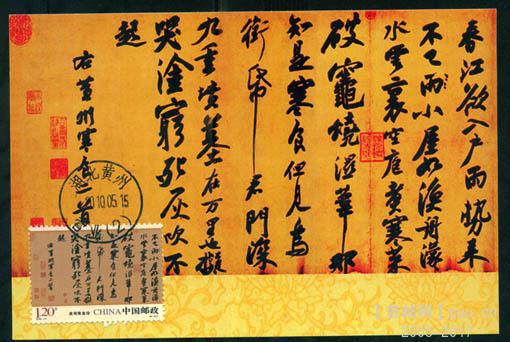 春江欲入戶雨勢來
不已雨小屋如漁舟濛濛
水雲裏空庖煮寒菜
破竈燒濕葦那
知是寒食但見烏
銜帋君門深
九重墳墓在万里也擬
哭塗窮死灰吹不
起
右黃州寒食二首
湖北黄州
10.05.15
1.20元
CHINA 中国邮政